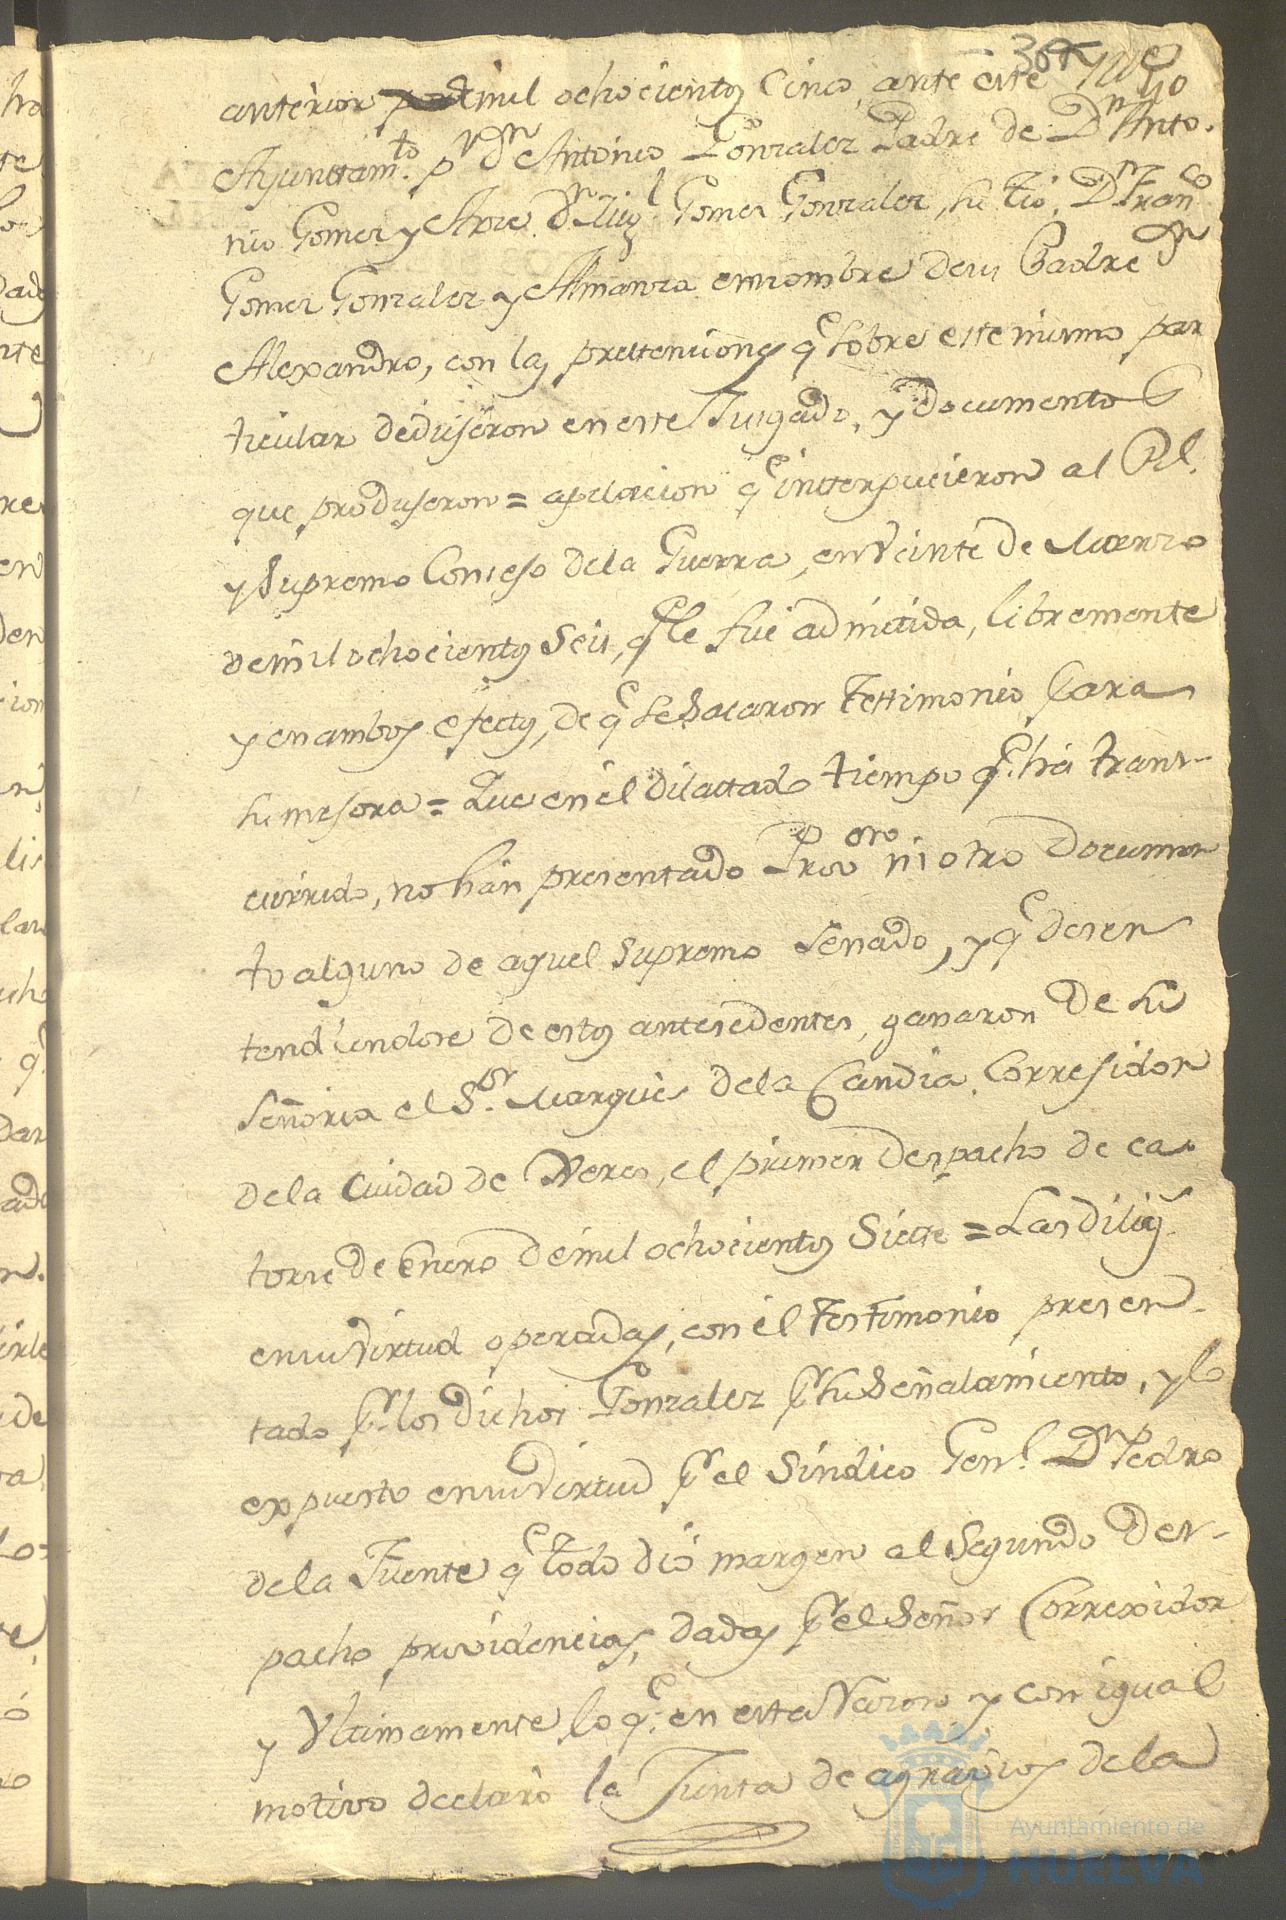 304
anterior de mil ochocientos Cinco, ante este Ylle
Ayuntam.to pr Dn Antonio Gonzalez Padre de Dn Anto-
nio Gomez y Dn Mig.l Gomez Gonzalez, su tio, Dn Fran.co
Gomez Gonzalez y Almanza ennombre desu Padre Dn
Alexandro, con las pretenciones q.e sobre este mismo par
ticular dedujeron en este Jusgado, y documentos
que produjeron = apelacion q.e interpucieron al Rl.
y Supremo Consejo dela Guerra, en Veinte de Marzo
demil ochocientos Seis, q.e le fue admitida, libremente
y en ambos efectos, de q.e se Sacaron Testimonio para
su mejora = Que en el dilattado tiempo q.e ha trans-
currido, no han presentado ni otro Documen
to alguno de aquel Supremo Senado, y q.e desen
tendiendose de estos antesedentes, ganaron de Su
Señoria el S.or Marques dela Candia, Corresidor
dela Ciudad de Xeres, el primer Despacho de ca-
torse de Enero demil ochocientos Siette = Las Dilig.s
ensu Virtud operadas, con el Testimonio presen-
tado pr los dichos Gonzalez pr su Señalamiento, y lo
expuesto ensu Virtud pr el Síndico Gen.l Dn Pedro
dela Fuente q.e todo dió margen al Segundo Des-
pacho providencias, dadas pr el Señor Correxidor
y Ultimamente lo q.e en esta Razon y con igual
motivo declaró la Junta de agravios dela
Ayuntamiento de
HUELVA